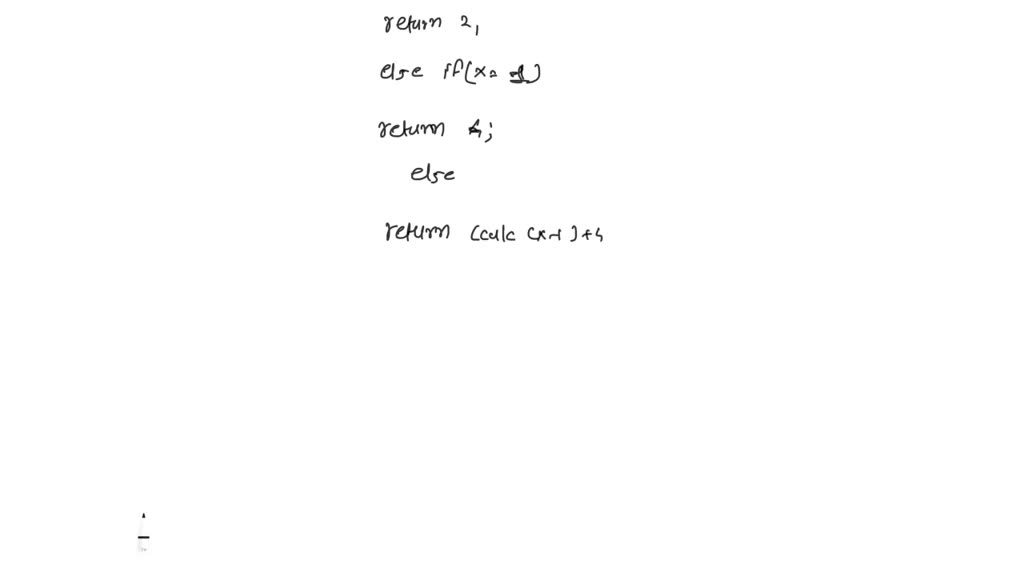 return 2,
else if(x=
return 4;
else
return (calc (x-1)+4